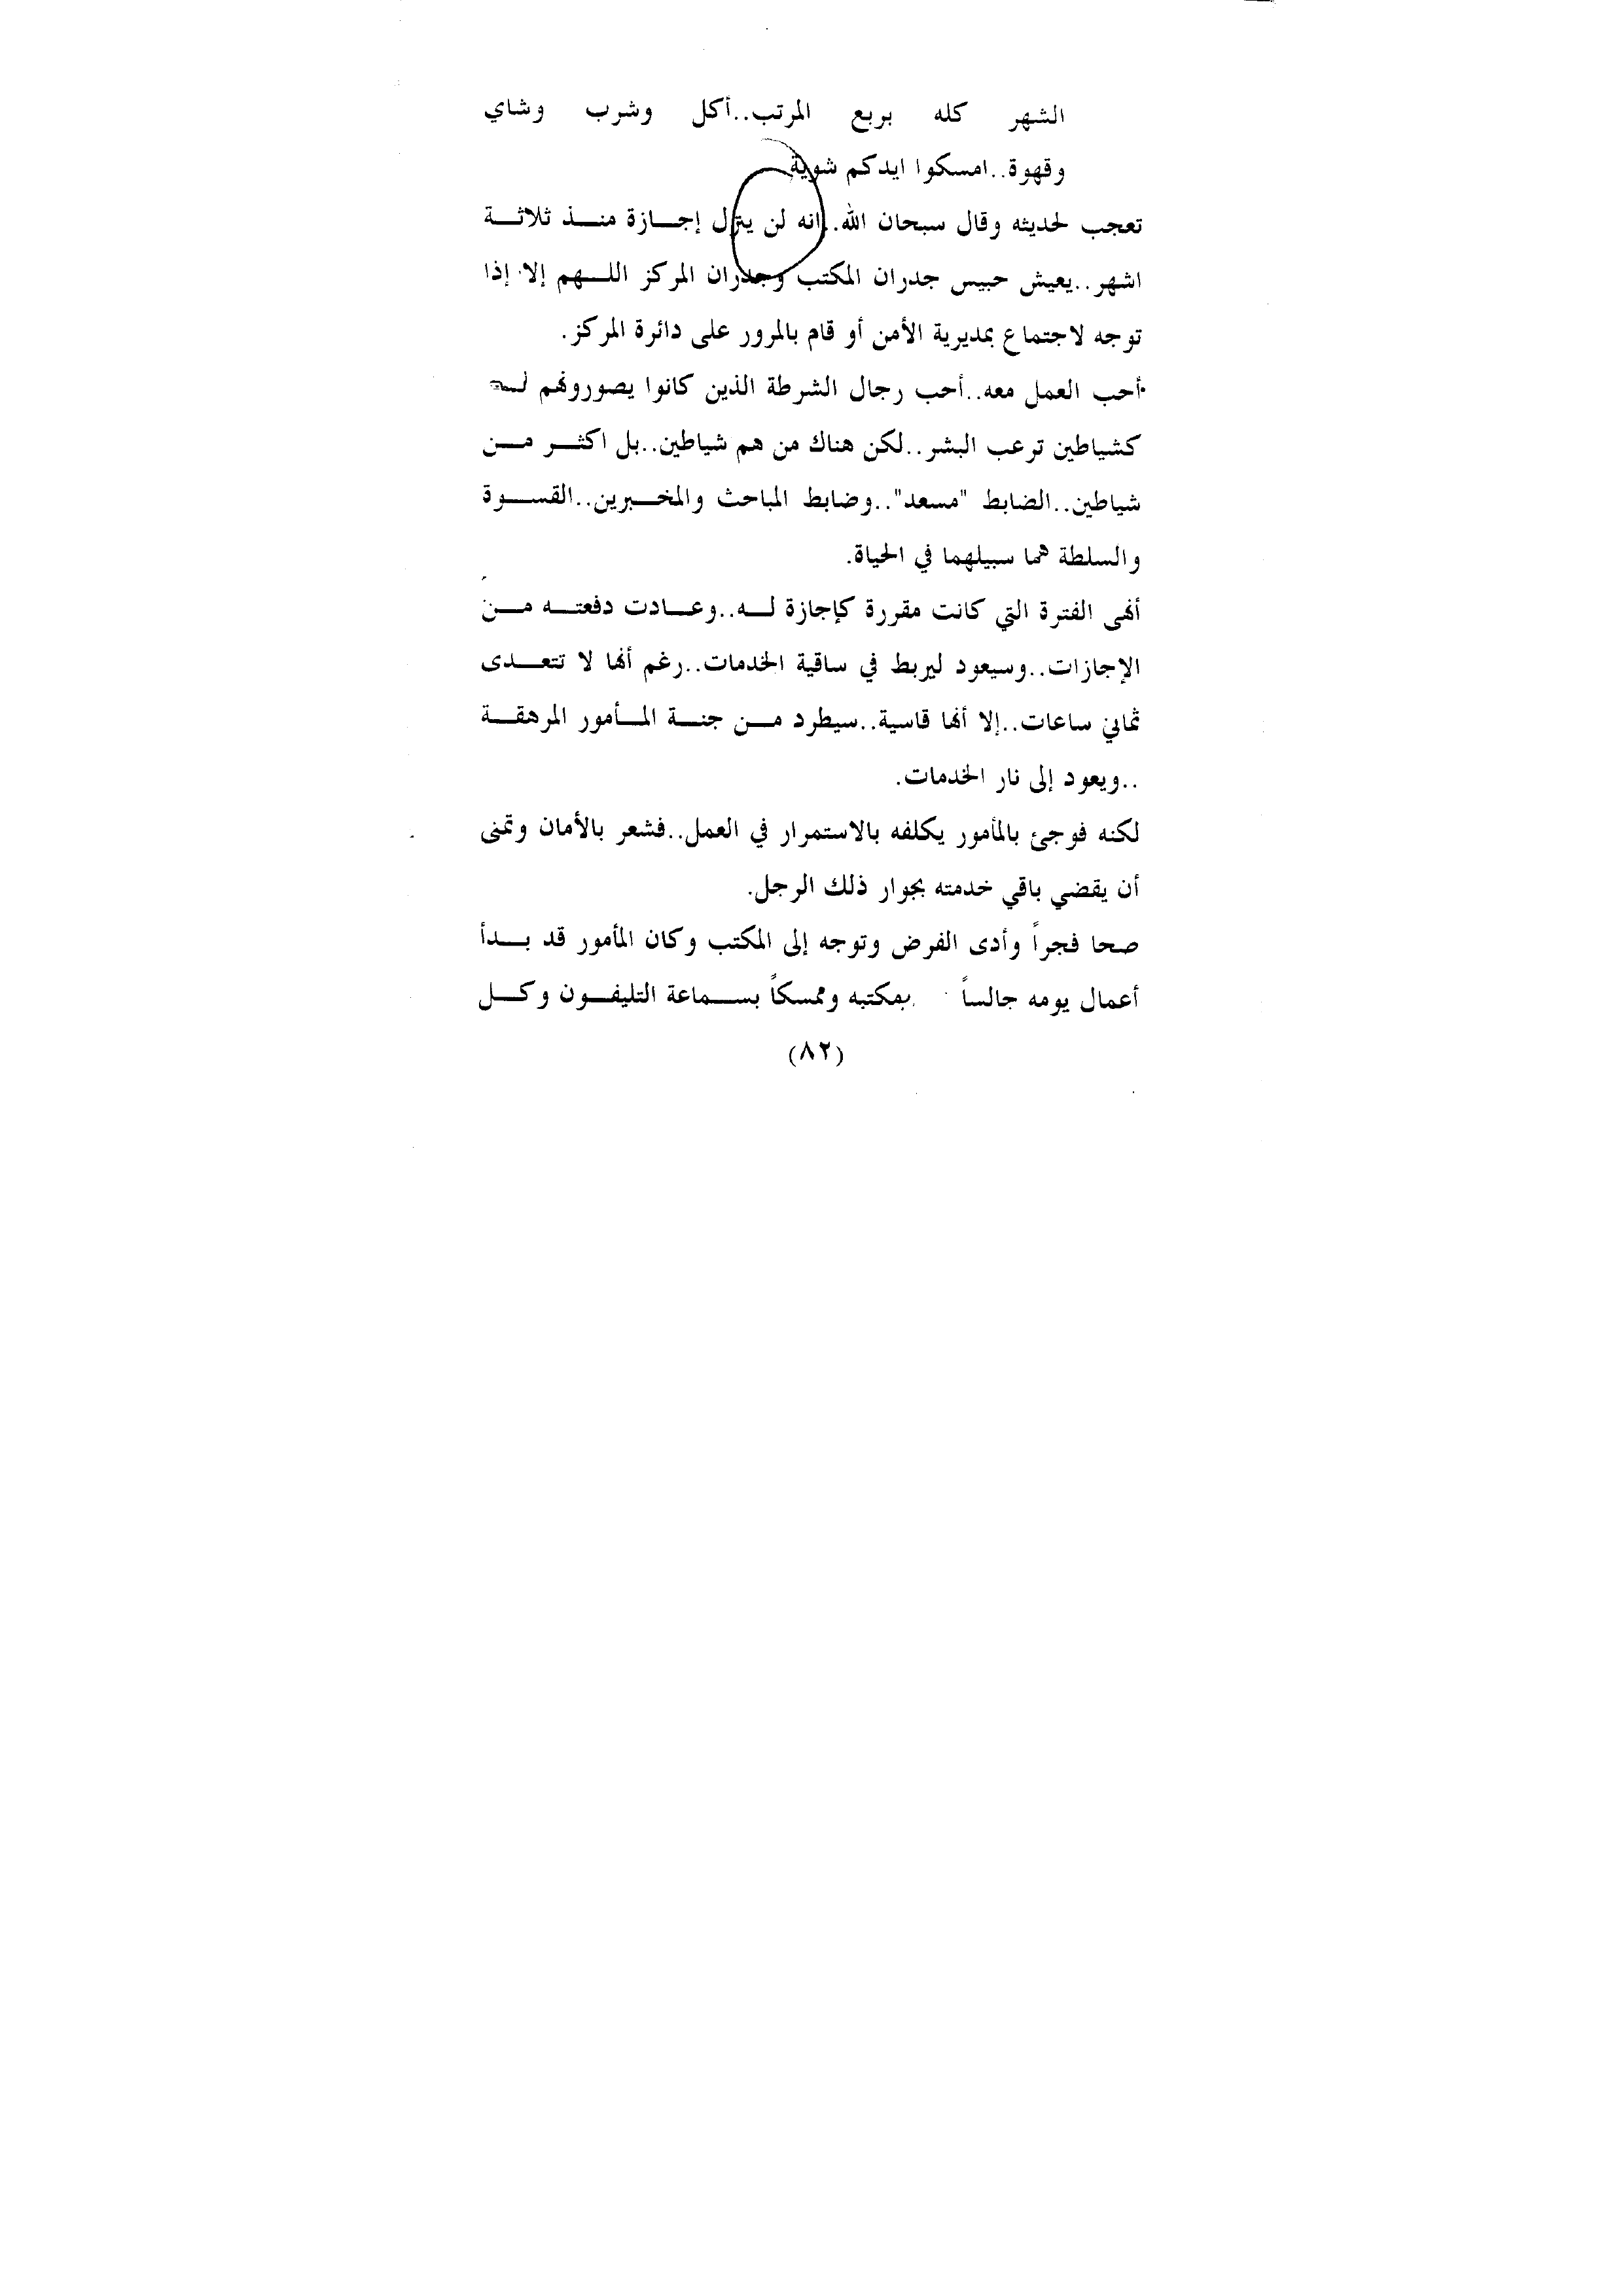 الشهر كله بربع المرتب..أكل وشرب وشاي
وقهوة..امسكوا ايدكم شوية
تعجب لحديثه وقال سبحان الله..إنه لن ينزل إجازة منذ ثلاثة
اشهر..يعيش حبيس جدران المكتب وجدران المركز اللهم إلا إذا
توجه لاجتماع بمديرية الأمن أو قام بالمرور على دائرة المركز.
أحب العمل معه..أحب رجال الشرطة الذين كانوا يصورونهم له
كشياطين ترعب البشر..لكن هناك من هم شياطين..بل اكثر من
شياطين..الضابط "مسعد"..وضابط المباحث والمخبرين..القسوة
والسلطة هما سبيلهما في الحياة.
أنهى الفترة التي كانت مقررة كإجازة له..وعادت دفعته من
الإجازات..وسيعود ليربط في ساقية الخدمات..رغم أنها لا تتعدى
ثماني ساعات..إلا أنها قاسية..سيطرد من جنة المأمور المرهقة
..ويعود إلى نار الخدمات.
لكنه فوجئ بالمأمور يكلفه بالاستمرار في العمل..فشعر بالأمان وتمنى
أن يقضي باقي خدمته بجوار ذلك الرجل.
صحا فجراً وأدى الفرض وتوجه إلى المكتب وكان المأمور قد بدأ
أعمال يومه جالساً بمكتبه وممسكاً بسماعة التليفون وكل
(٨٢)